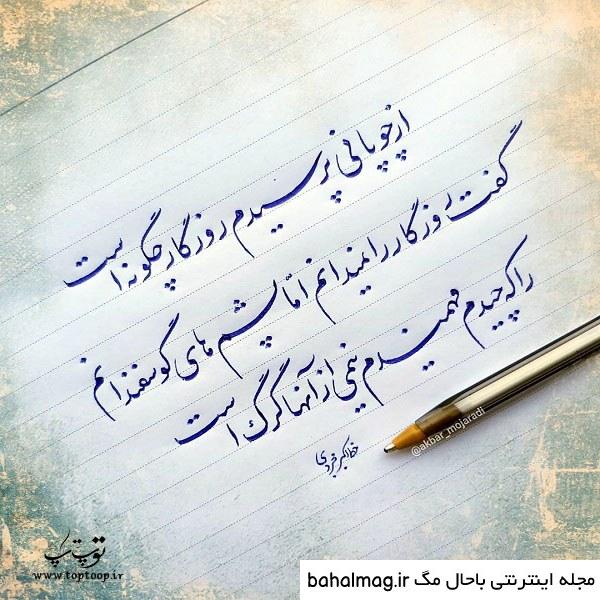 از چوپانی پرسیدم روزگار چگونه است
گفت روزگار را نمیدانم اما پشم های گوسفندانم
را که چیدم فهمیدم نیمی از آنها گرگ است
خط اکبر مجردی
@akbar_mojaradi
توپ تاپ
www.toptoop.ir
مجله اینترنتی باحال مگ bahalmag.ir